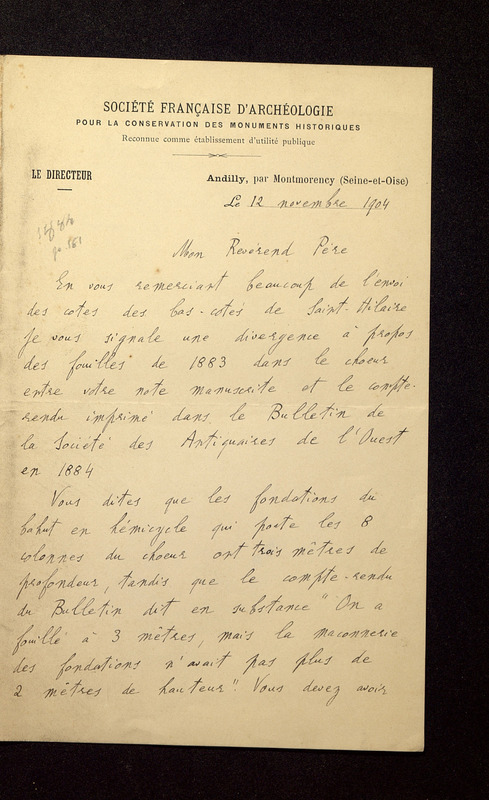 SOCIÉTÉ FRANÇAISE D'ARCHÉOLOGIE
POUR LA CONSERVATION DES MONUMENTS HISTORIQUES
Reconnue comme établissement d'utilité publique
LE DIRECTEUR
Andilly, par Montmorency (Seine-et-Oise)
Le 12 novembre 1904
Mon Révérend Père
En vous remerciant beaucoup de l'envoi
des cotes des bas-cotés de Saint-Hilaire
je vous signale une divergence à propos
des fouilles de 1883 dans le choeur
entre votre note manuscrite et le compte-
rendu imprimé dans le Bulletin de
la Société des Antiquaires de l'Ouest
en 1884
Vous dites que les fondations du
bahut en hémicycle qui porte les 8
colonnes du choeur ont trois mètres de
profondeur, tandis que le compte-rendu
du Bulletin dit en substance "On a
fouillé à 3 mètres, mais la maconnerie
des fondations n'avait pas plus de
2 mètres de hauteur". Vous devez avoir